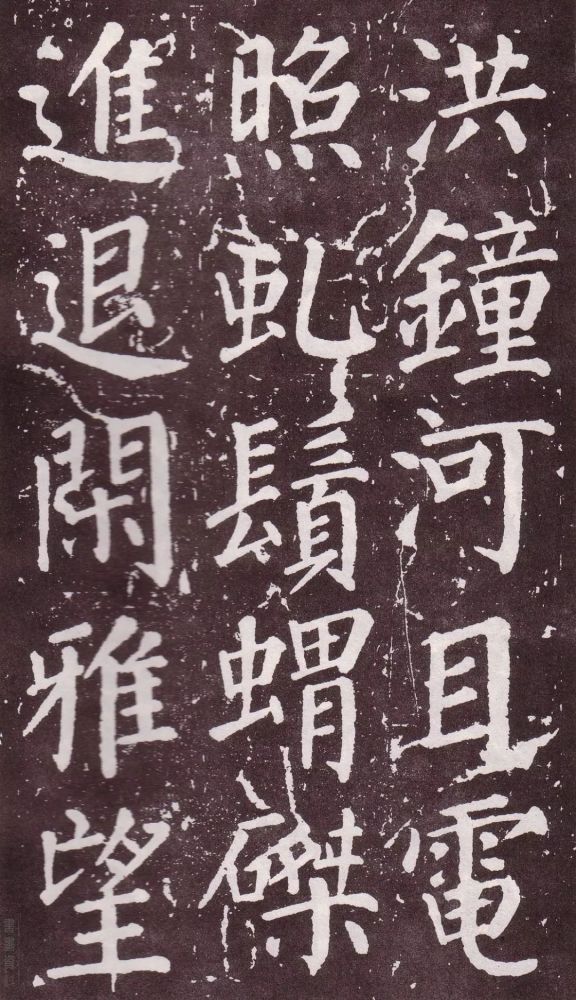 洪鐘河目電
照虬鬚蝟磔
進退閑雅望